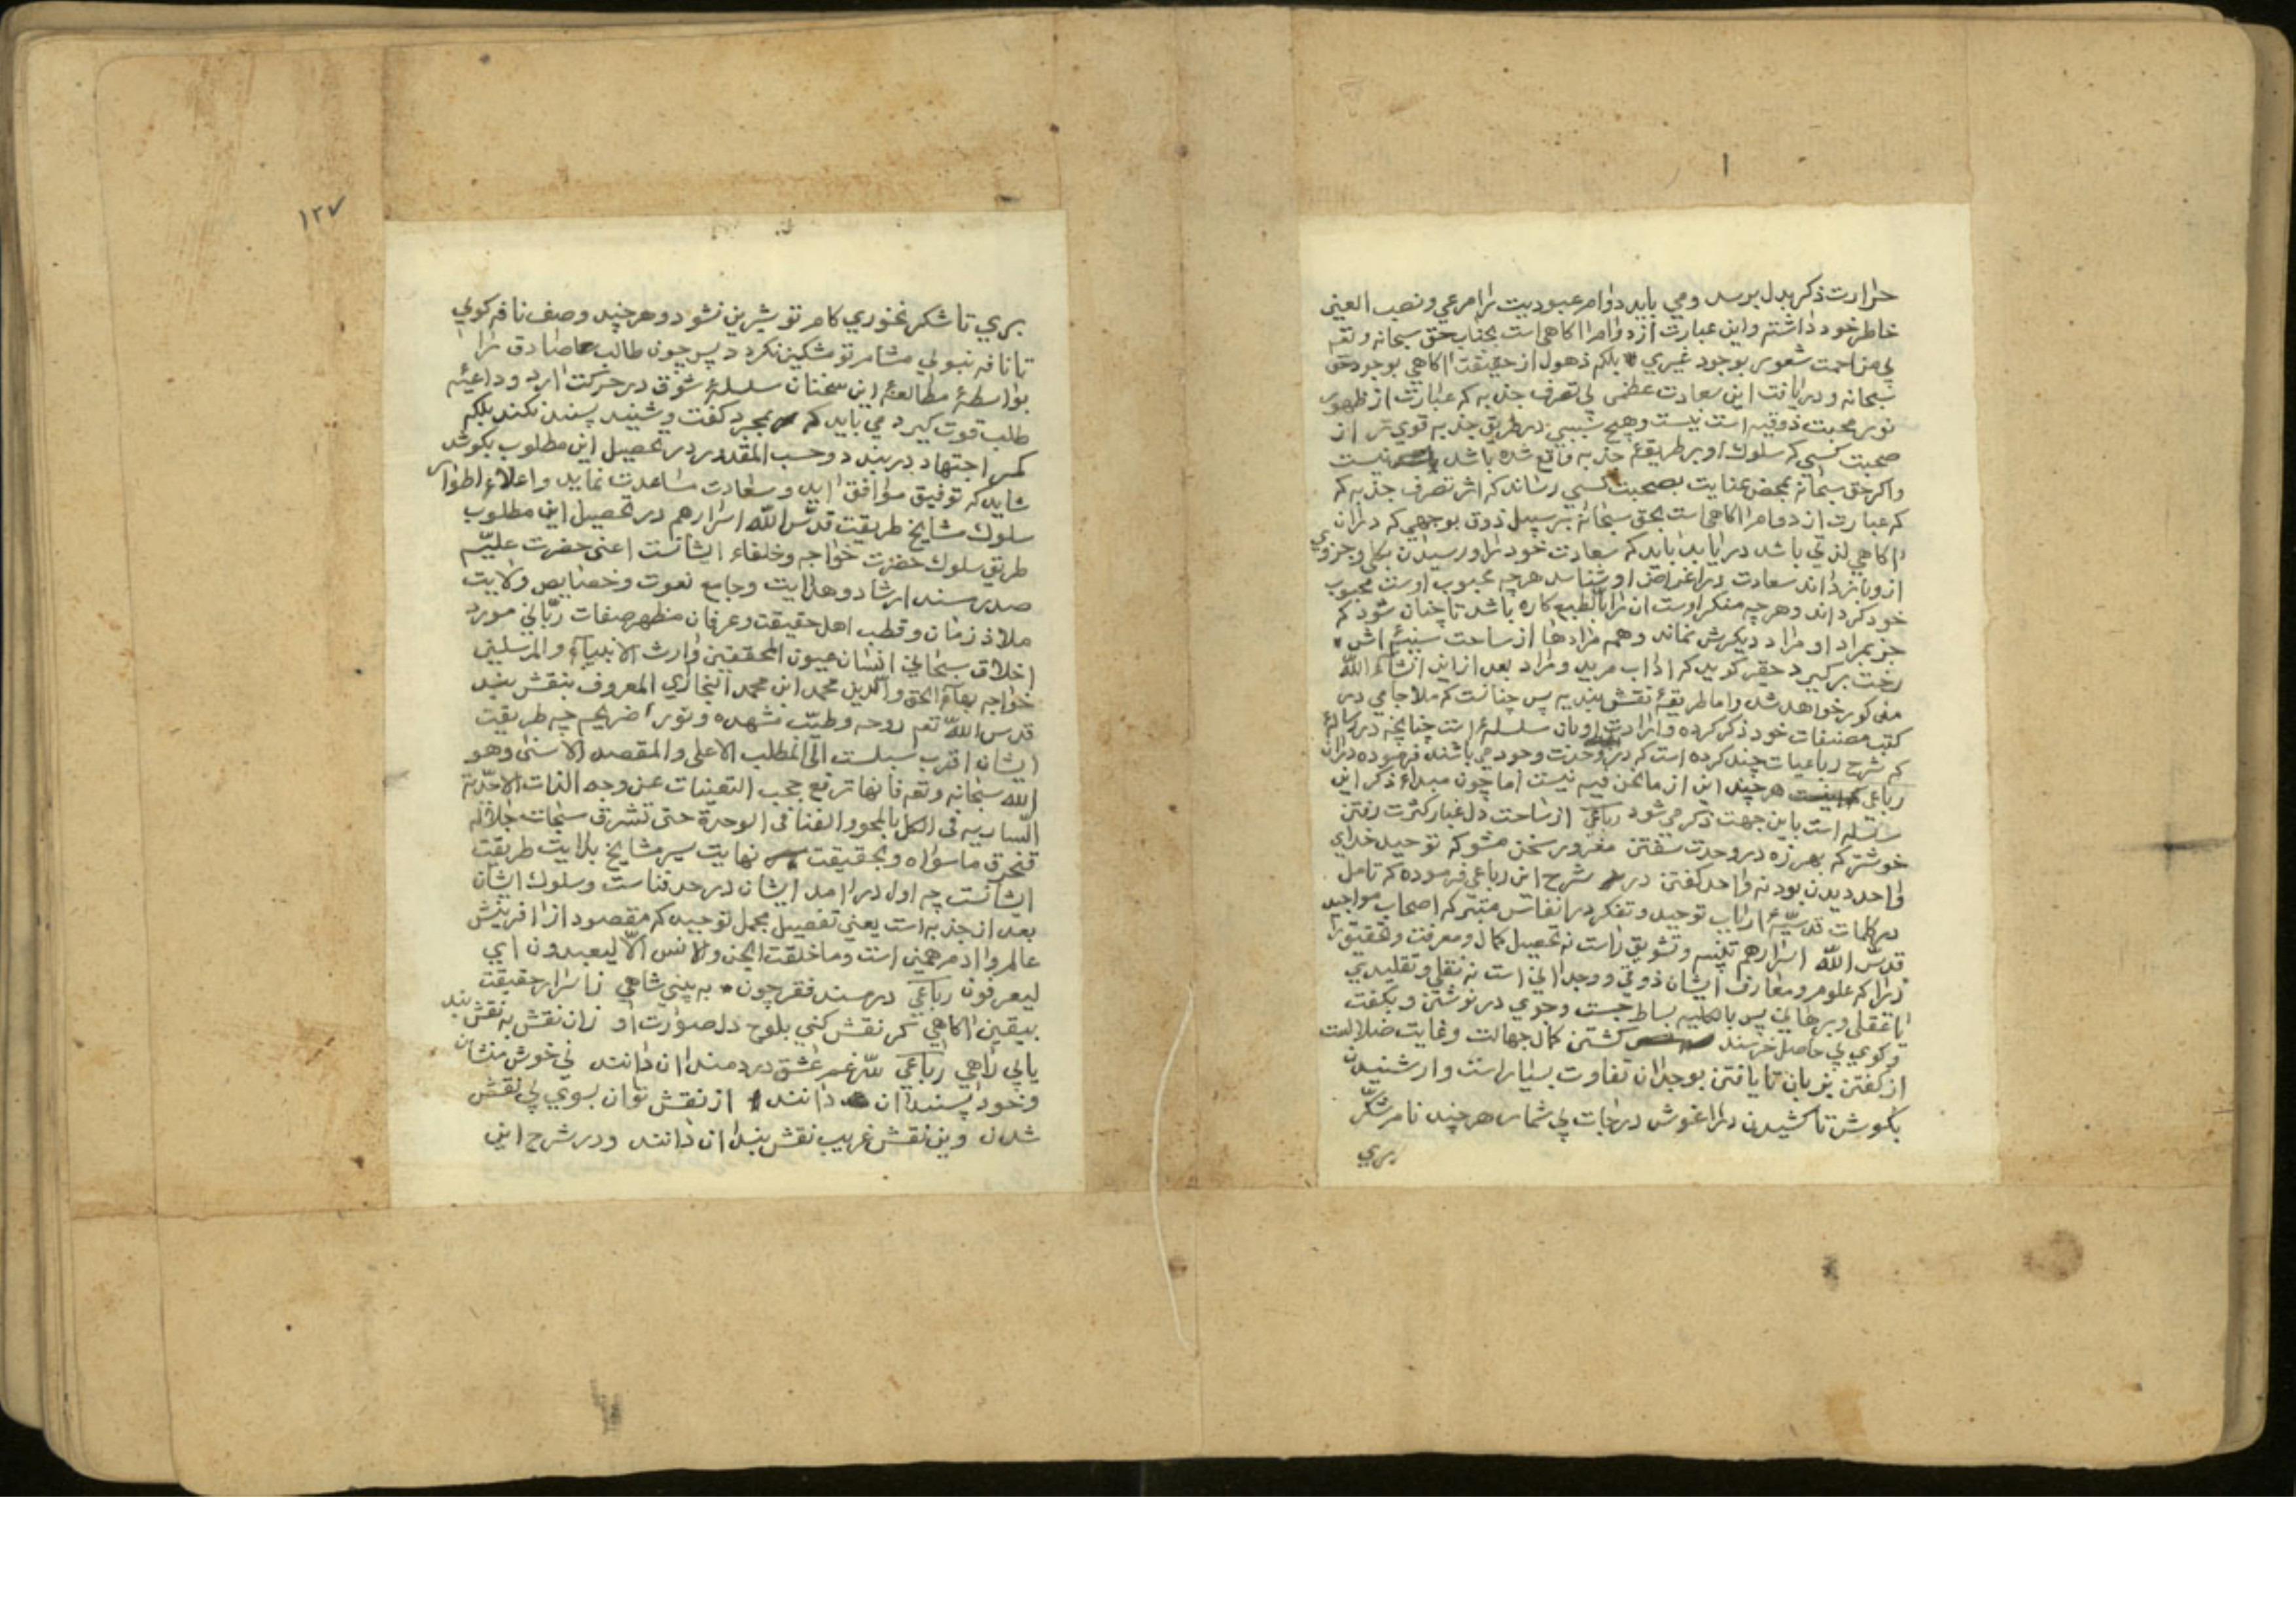 حرارت ذکر بدل برسد و می باید دوام عبودیت را مرعی و نصب العین
خاطر خود داشته و این عبارت از دوام اکاهی است بجناب حق سبحانه و تعه
بی مزاحمت شعور بوجود غیری بلکه ذهول از حقیقت اکاهی بوجود حق
سبحانه و دریافت این سعادت عظمی بی تصرف جذبه که عبارت از ظهور
نور محبت ذوقیه است نیست و هیچ سببی در طریق جذبه قوی تر از
صحبت کسی که سلوک او بر طریقه جذبه واقع شده باشد نیست
و اکر حق سبحانه بمحض عنایت بصحبت کسی رساند که اثر تصرف جذبه که
که عبارت از دوام اکاهی است بحق سبحانه بر سبیل ذوق بوجهی که دران
اکاهی لذتی باشد دریابد باید که سعادت خود را و رسیدن بکلی و جزوی
ازو باز داند سعادت در اغراض او شناسد هرچه محبوب اوست محبوب
خود کرداند و هرچه منکر اوست ان را بالطبع کاره باشد تا چنان شود که
جز بمراد او مراد دیکرش نماند و همه مرادها از ساحت سینه اش
رخت بر کیرد حقیر کوید که اداب مرید و مراد بعد از این انشاء الله
مذکور خواهد شد و اما طریقه نقشبندیه پس چنانست که ملا جامی در
کتب مصنفات خود ذکر کرده و ارادت او بان سلسله است چنانچه در رساله
که شرح رباعیات چند کرده است که در وحدت وجود می باشند فرموده دران
رباعی هرچند این از ما نحن فیه نیست اما چون مبداء ذکر این
سلسله است باین جهت ذکر می شود رباعی از ساحت دل غبار کثرت رفتن
خوشتر که بهرزه در وحدت سفتن مغرور سخن مشو که توحید خدای
واحد دیدن بود نه واحد کفتن در شرح این رباعی فرموده که تامل
در کلمات قدسیه ارباب توحید و تفکر در انفاس متبرکه اصحاب مواجید
قدس الله اسرارهم تنبیه و تشویق راست نه تحصیل کمال و معرفت و تحقیق را
زیرا که علوم و معارف ایشان ذوقی و وجدانی است نه نقلی و تقلیدی
یا عقلی و برهانی پس بالکلیه بساط جست و جوی در نوشتن و بکفت
و کوی بی حاصل خرسند کشتن کمال جهالت و غایت ضلالت
از کفتن بزبان تا یافتن بوجدان تفاوت بسیار است و از شنیدن
بکوش تا کشیدن در اغوش درجات بی شمار هرچند نام شکر
بری
۱۲۷
بری تا شکر نخوری کام تو شیرین نشود و هرچند وصف نافه کوی
تا نافه نبوئی مشام تو مشکین نکردد پس چون طالب صادق را
بواسطه مطالعه این سخنان سلسله شوق در حرکت اید و داعیه
طلب قوت کیرد می باید که بمجرد کفت و شنید پسند نکند بلکه
کمر اجتهاد در بندد و حسب المقدور در تحصیل این مطلوب بکوشد
شاید که توفیق موافق اید و سعادت مساعدت نماید و اعلاء اطوار
سلوک مشایخ طریقت قدس الله اسرارهم در تحصیل این مطلوب
طریق سلوک حضرت خواجه و خلفاء ایشانست اعنی حضرت علیه
صدر مسند ارشاد و هدایت و جامع نعوت و خصایص ولایت
ملاذ زمان و قطب اهل حقیقت و عرفان مظهر صفات ربانی مورد
اخلاق سبحانی انسان عیون المحققین وارث الانبیاء و المرسلین
خواجه بهاء الحق و الدین محمد ابن محمد البخاری المعروف بنقش بند
قدس الله تعه روحه و طیب مشهده و نور ضریحه چه طریقت
ایشان اقرب سبلست الی المطلب الاعلی و المقصد الاسنی و هو
الله سبحانه و تعه فانها ترفع حجب التعینات عن وجه الذات الاحدیة
الساریه فی الکل بالمحو و الفنا فی الوحدة حتی تشرق سبحات جلاله
فتحرق ما سواه و بحقیقت نهایت سیر مشایخ بدایت طریقت
ایشانست چه اول در امد ایشان در حد فناست و سلوک ایشان
بعد از جذبه است یعنی تفصیل مجمل توحید که مقصود از افرینش
عالم و ادم همین است و ما خلقت الجن و الانس الا لیعبدون ای
لیعرفون رباعی در مسند فقر چون به بینی شاهی ز اسرار حقیقت
بیقین اکاهی کر نقش کنی بلوح دل صورت او زان نقش به نقش بند
یابی راهی رباعی سر غم عشق دردمندان دانند نی خوش منشان
و خود پسندان دانند از نقش توان بسوی بی نقش
شدن وین نقش غریب نقش بندان دانند و در شرح این